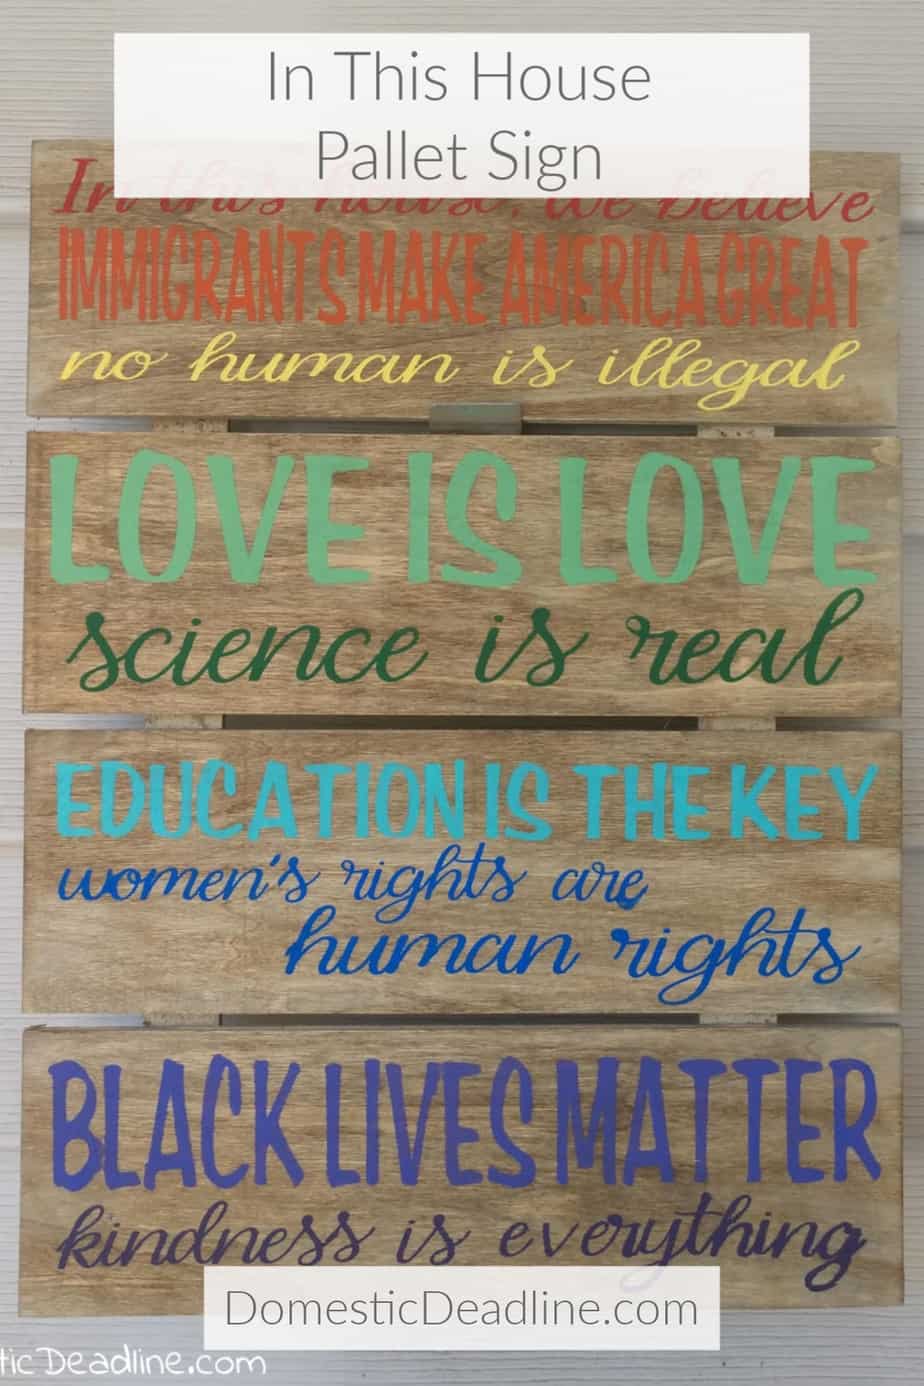 In This House
Pallet Sign
In this house, we believe
IMMIGRANTS MAKE AMERICA GREAT
no human is illegal
LOVE IS LOVE
science is real
EDUCATION IS THE KEY
women's rights are
human rights
BLACK LIVES MATTER
kindness is everything
DomesticDeadline.com
ticDeadline.com